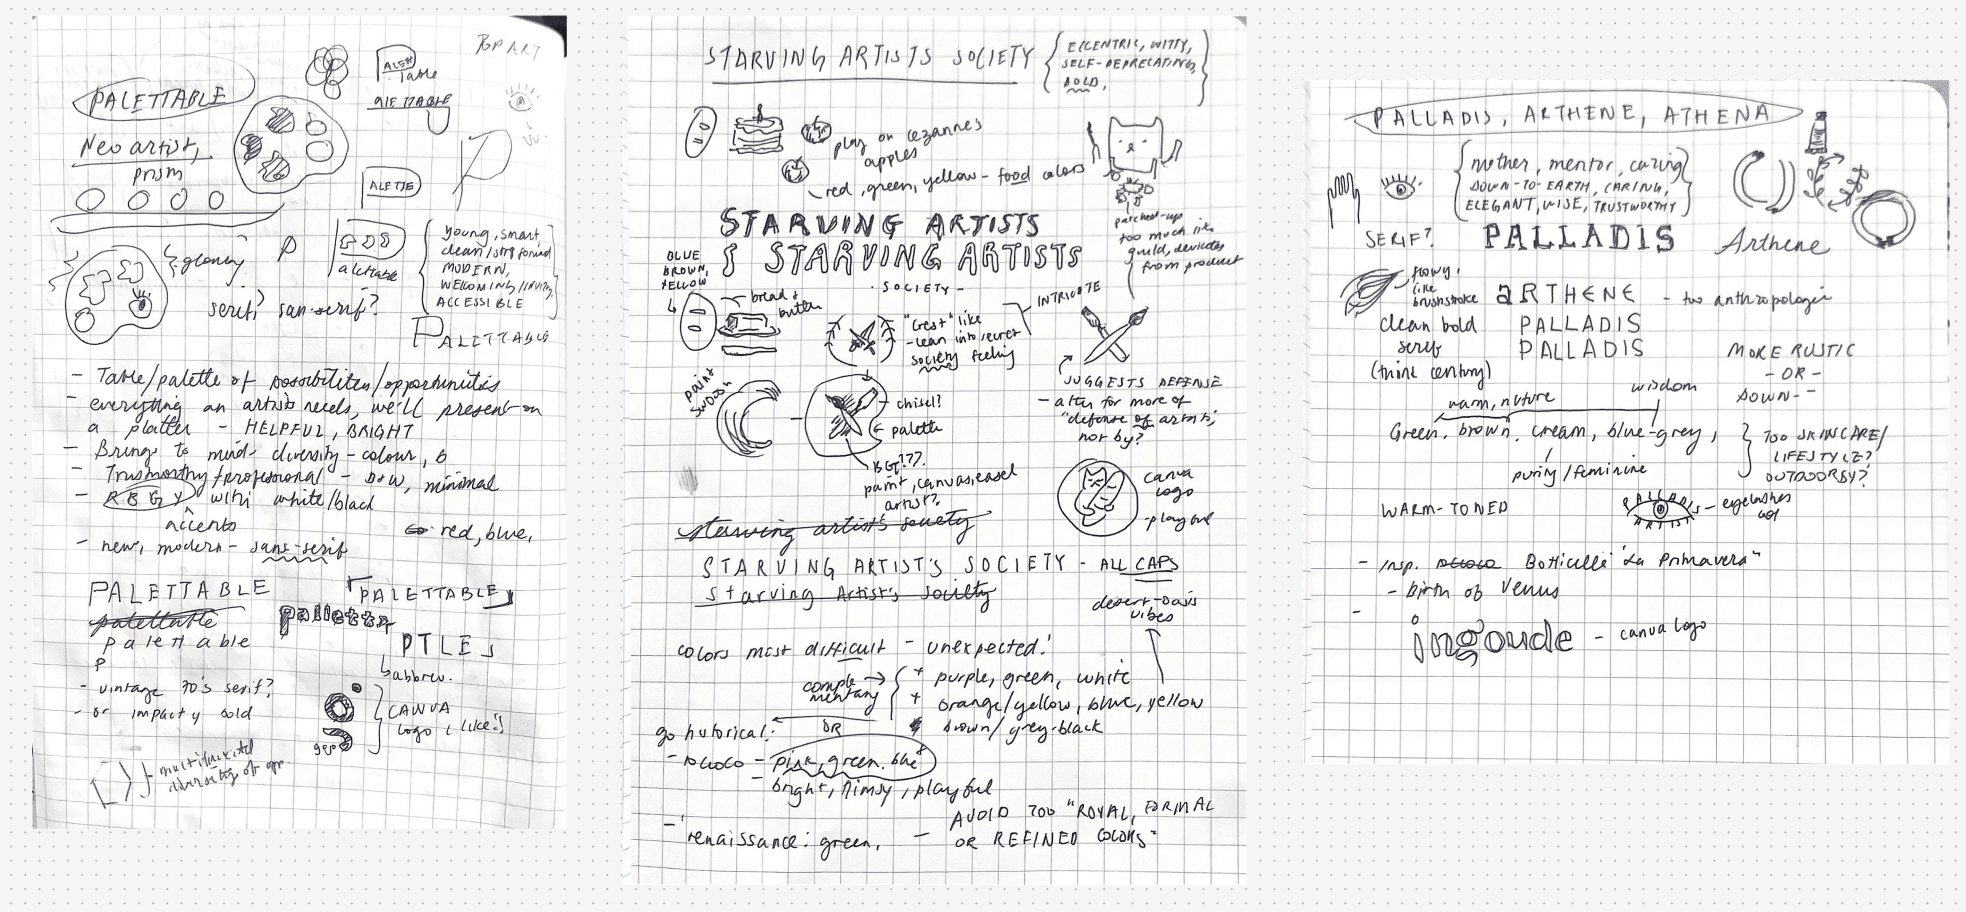 POP ART
ALETT
Table
PALETTABLE
ALETTABLE
Neo artist,
prism
P
ALETTE
glowing
P
alettable
young, smart
clean/strg formed
MODERN,
WELCOMING/INVITING,
ACCESSIBLE
serif? san-serif?
PALETTABLE
- Table/palette of possibilities/opportunities
- everything an artists needs, we'll present on
a platter - HELPFUL, BRIGHT
- Brings to mind diversity - colour,
- Trustworthy/professional - minimal
- RBGY with white/black
accents
red, blue,
- new, modern - sans-serif
PALETTABLE
PALETTABLE
palettable
palettable
Palette
P
PTLE
abbrev.
- vintage 70's serif?
- or impacty bold
CANVA
logo (like!)
multifaceted
diversity of
STARVING ARTISTS SOCIETY
ECCENTRIC, WITTY,
SELF-DEPRECATING,
BOLD,
play on cezanne's
apples
red, green, yellow - food colors
STARVING ARTISTS
STARVING ARTISTS
- SOCIETY -
patched-up
too much like
guild, deviates
from product
BLUE
BROWN,
YELLOW
bread &
butter
"Crest" like
- lean into secret
society feeling
INTRICATE
paint
swoosh
- chisel?
palette
BG???
paint, canvas, easel
artist?
SUGGESTS DEFENSE
- alter for more of
"defense of artists,"
not by?
canva
logo
- playful
starving artist's society
STARVING ARTIST'S SOCIETY - ALL CAPS
starving Artist's society
desert-oasis
vibes
colors most difficult - unexpected!
comple
mentary
+ purple, green, white
+ orange/yellow, blue, yellow
brown/grey-black
go historical:
OR
- rococo - pink, green, blue
- bright, flimsy, playful
- renaissance: green,
- AVOID TOO "ROYAL, FORMAL
OR REFINED COLORS"
PALLADIS, ARTHENE, ATHENA
mother, mentor, caring
DOWN-TO-EARTH, CARING,
ELEGANT, WISE, TRUSTWORTHY
SERIF?
PALLADIS
Arthene
flowy,
like
brushstroke
aRTHENE - too anthropologie
clean bold
serif
(think century)
PALLADIS
PALLADIS
MORE RUSTIC
- OR -
DOWN--
warm, nuture
wisdom
Green, brown, cream, blue-grey,
purity/feminine
TOO SKINCARE/
LIFESTYLE?
OUTDOORSY?
WARM-TONED
ARTIST
- eyelashes
- Insp. rococo Botticelli "La Primavera"
- Birth of Venus
-
ingoude - canva logo